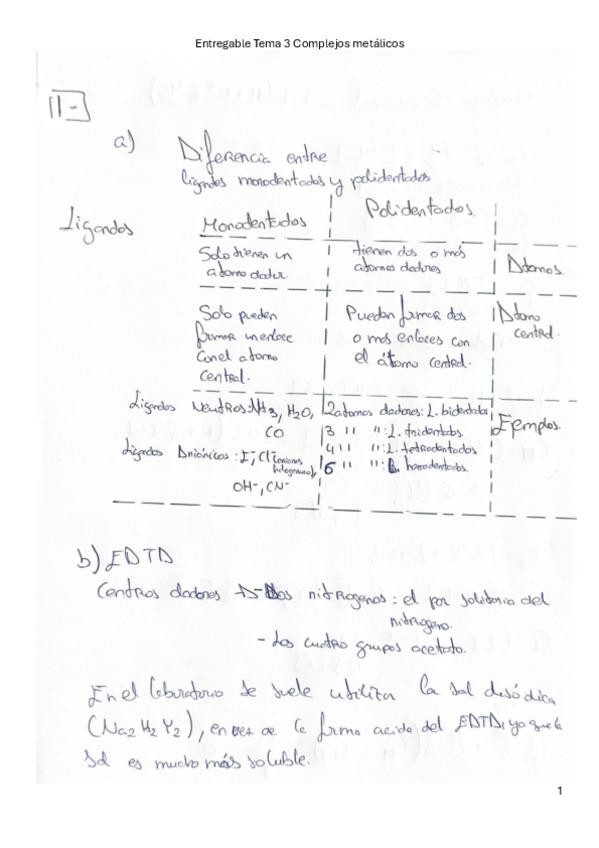 Entregable Tema 3 Complejos metálicos
11-
a) Diferencia entre
ligandos monodentados y polidentados
Ligandos Monodentados Polidentados.
Solo tienen un tienen dos o más
atomo dador atomos dadores Átomos
Solo pueden Pueden formar dos Átomo
formar un enlace o más enlaces con central.
con el atomo el átomo central.
central.
Ligandos Neutros: NH3, H2O, 2 atomos dadores: L. bidentados Ejemplos
CO 3 " ": L. tridentados
Ligandos Aniónicos: F-, Cl- 4 " ": L. tetradentados
6 " ": hexadentados
OH-, CN-
b) EDTA
Centros dadores → Dos nitrogenos: el par solitario del
nitrogeno.
- Los cuatro grupos acetato.
En el laboratorio se suele utilizar la sal disódica
(Na2 H2 Y2), en vez de la forma acida del EDTA, ya que la
sal es mucho más soluble.
1